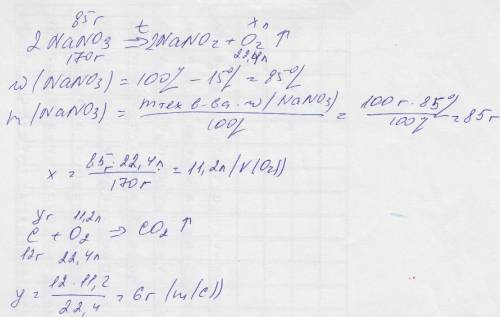 85г t x л
2NaNO3 ⇒ 2NaNO2 + O2 ↑
170г 22,4л
w(NaNO3) = 100% - 15% = 85%
m(NaNO3) = mтех.в-ва · w(NaNO3) / 100% = 100г · 85% / 100% = 85г
x = 85г · 22,4л / 170г = 11,2л (V(O2))
yг 11,2л
C + O2 ⇒ CO2 ↑
12г 22,4л
y = 12 · 11,2 / 22,4 = 6г (m(C))